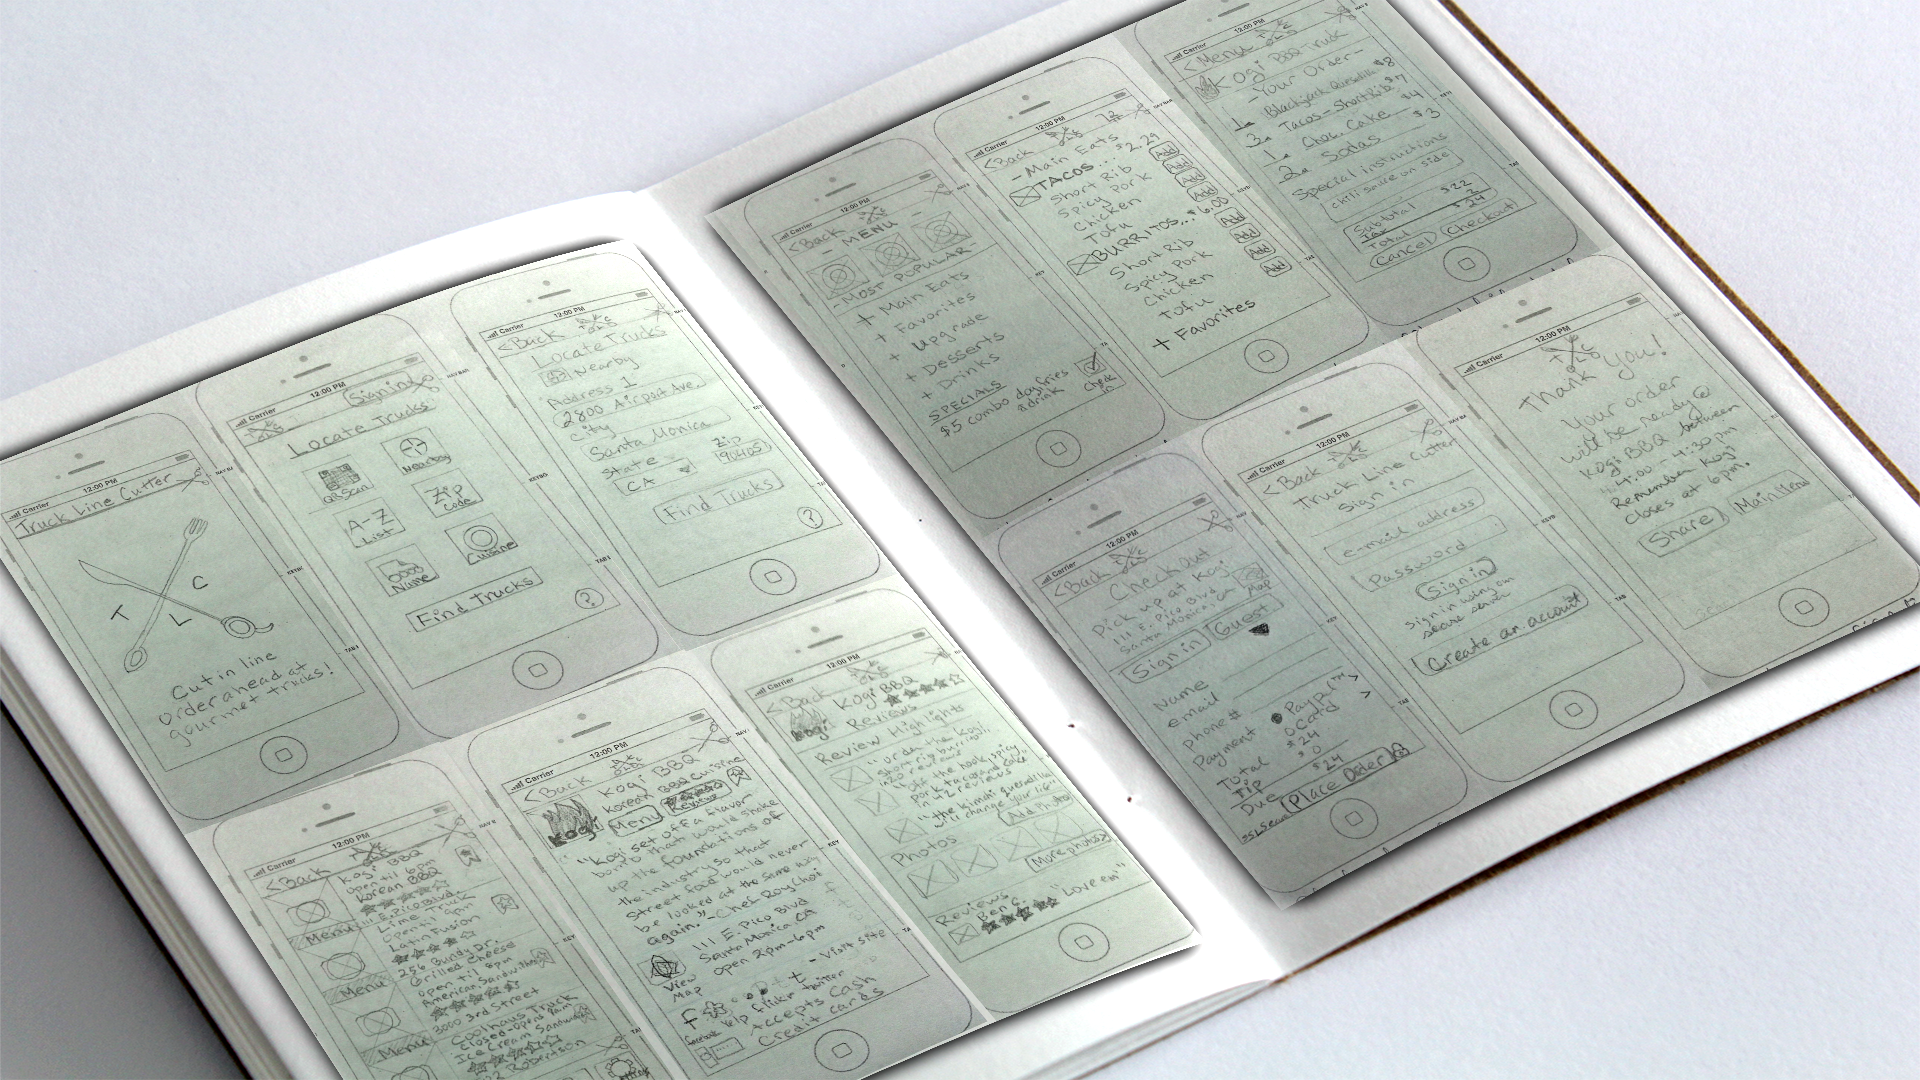 Carrier
12:00 PM
Truck Line Cutter
T
L
C
Cut in line
order ahead at
gourmet trucks!
Carrier
12:00 PM
Sign in
Locate Trucks
QR Scan
Nearby
A-Z
List
Zip
Code
Name
Cuisine
Find Trucks
?
Carrier
12:00 PM
<Back
Locate Trucks
Nearby
Address 1
2800 Airport Ave.
City
Santa Monica
State
Zip
CA
90405
Find Trucks
?
Carrier
12:00 PM
<Back
Kogi BBQ
Open til 6pm
Korean BBQ
111 E. Pico Blvd
Menu
Lime Truck
Open til 9pm
Latin Fusion
256 Bundy Dr.
Menu
Grilled Cheese
Open til 8pm
American Sandwiches
3000 3rd Street
Menu
Coolhaus Truck
Closed-opens 9am
Ice Cream Sandwich
Robertson
Carrier
12:00 PM
<Back
Kogi BBQ
Korean BBQ Cuisine
Kogi
Menu
Reviews
"Kogi set off a flavor
bomb that would shake
up the foundations of
the industry so that
street food would never
be looked at the same way
again." -Chef Roy Choi
111 E. Pico Blvd
Santa Monica CA
Open 2pm-6pm
View
Map
- Visit site
f
t
facebook
yelp
flikr
twitter
Accepts Cash
Credit cards
Carrier
12:00 PM
<Back
Kogi BBQ
Kogi
Reviews
Review Highlights
"order the Kogi
short rib burrito"
in 20 reviews
"the kimchi quesadilla
will change your life"
Add Photos
Photos
More photos>
Reviews
Ben G.
"Love em"
Carrier
12:00 PM
<Back
- MENU -
- MOST POPULAR -
+ Main Eats
+ Favorites
+ Upgrade
+ Desserts
+ Drinks
SPECIALS
$5 combo dogfries
&drink
Check
in
Carrier
12:00 PM
<Back
- Main Eats
TACOS... $2.29
Short Rib
Add
Spicy Pork
Add
Chicken
Add
Tofu
Add
BURRITOS... $6.00
Short Rib
Add
Spicy Pork
Add
Chicken
Add
Tofu
Add
+ Favorites
Carrier
12:00 PM
<Menu
Kogi BBQ Truck
- Your Order -
1 Blackjack Quesadilla $8
3 Tacos - Short Rib $7
1 Choc. Cake $4
2 Sodas $3
Special instructions
chili sauce on side
Subtotal $22
Tax 2
Total $24
Cancel
Checkout
Carrier
12:00 PM
<Back
Check out
Pick up at Kogi
111 E. Pico Blvd
Santa Monica, CA
Map
Sign in
Guest
Name
email
phone#
Payment
PayPal™ >
Card >
Total $24
Tip $0
Due $24
Place Order
Carrier
12:00 PM
<Back
Truck Line Cutter
Sign in
e-mail address
Password
Sign in
sign in using our
secure server
Create an account
Carrier
12:00 PM
TLC
Thank you!
Your order
will be ready @
Kogi BBQ between
4:00 - 4:30pm
Remember Kogi
closes at 6pm.
Share
Main Menu